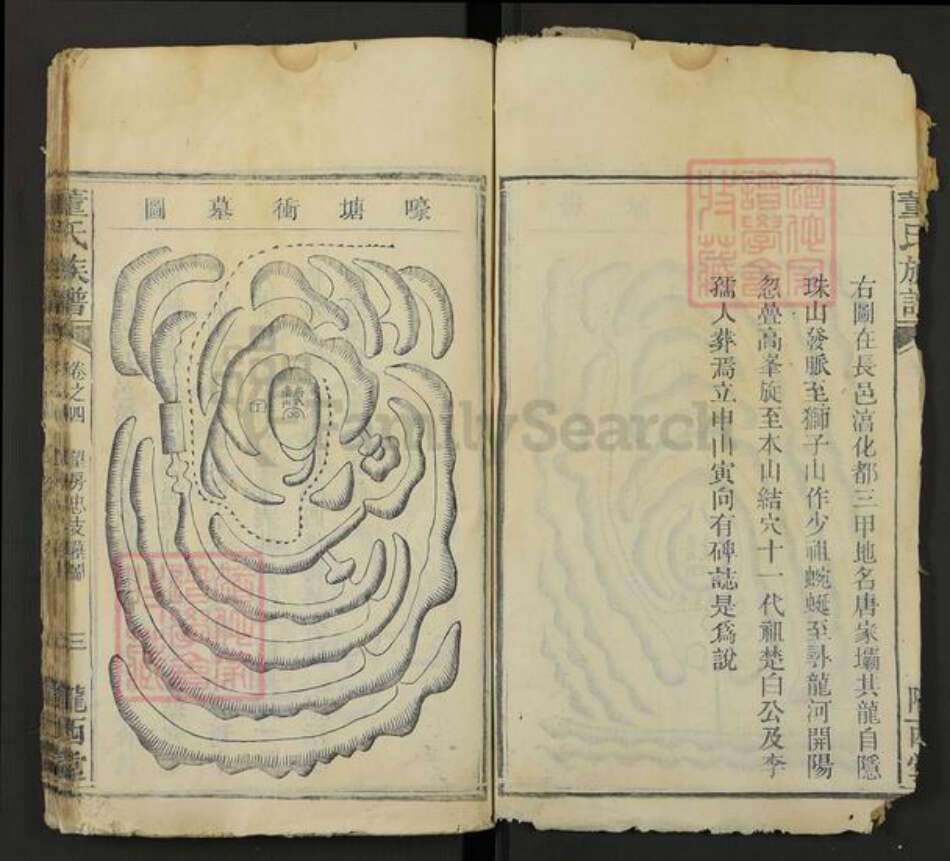 董氏族譜
右圖在長邑滈化都三甲地名唐家壩其龍自隱
珠山發脈至獅子山作少祖蜿蜒至尋龍河開陽
忽疊高峯旋至木山結穴十一代祖楚白公及李
孺人葬焉立申山寅向有碑誌是爲說
嚎塘衝墓圖
董氏族譜
卷之四
三
隴西堂
FamilySearch